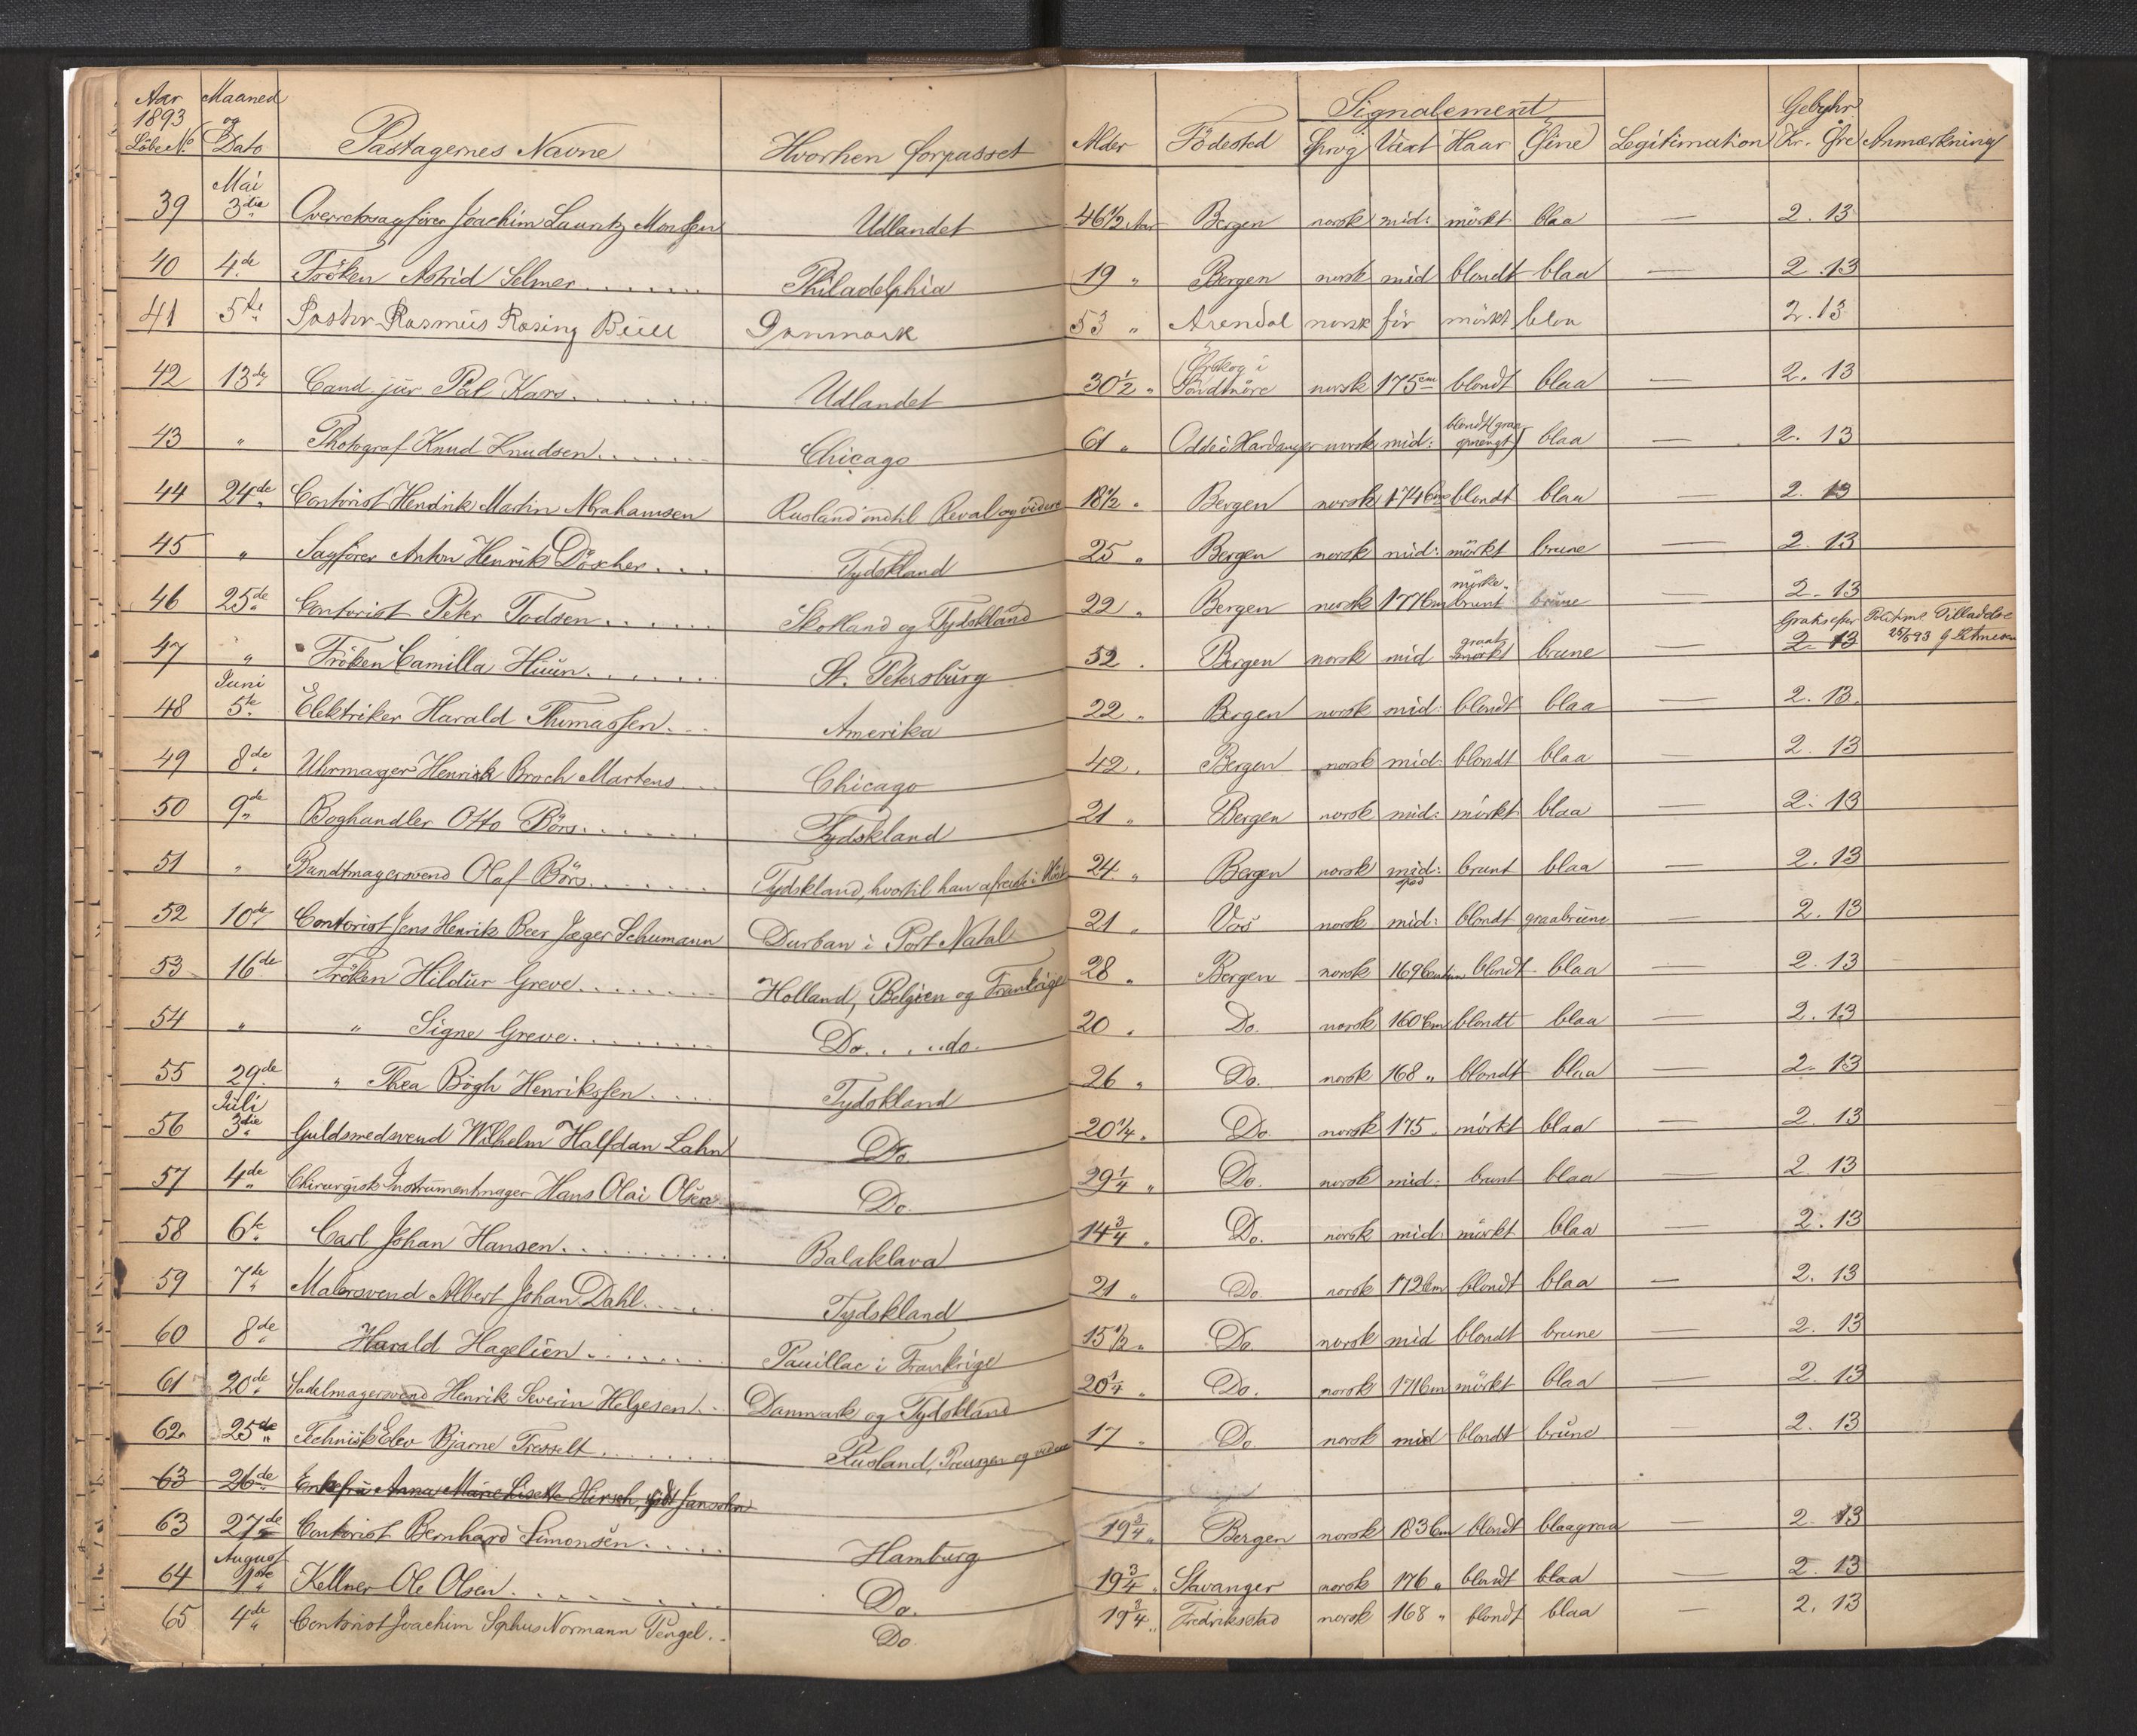 Aar 1893 Maaned og Signalement Gebyhr
Löbe No Dato Pastagernes Navne Hvorhen forpasset Alder Födested Sprog Växt Haar Öine Legitimation Kr. Øre Anmærkning
Mai
39 3die Overretssagfører Joachim Lauritz Monssen Udlandet 46 1/2 Aar Bergen norsk mid: mörkt blaa — 2. 13
40 4de Fröken Astrid Selmer........ Philadelphia 19 " Bergen norsk mid blondt blaa — 2. 13
41 5te Pastor Rasmus Rosing Bull Danmark 53 " Arendal norsk för mörkt blaa 2. 13
42 13de Cand. jur Pål Kars........ Udlandet 30 1/2 " Örskog i Söndmöre norsk 175 cm blondt blaa — 2. 13
43 " Photograf Knud Knudsen........ Chicago 61 " Odde i Hardanger norsk mid: blondt (graa sprengt) blaa — 2. 13
44 24de Contorist Hendrik Martin Abrahamsen Rusland indtil Reval og videre 18 1/2 " Bergen norsk 174 Cm blondt blaa — 2. 13
45 " Sagfører Anton Henrik Döscher.... Tydskland 25 " Bergen norsk mid: mörkt brune — 2. 13
46 25de Contorist Peter Todsen...... Skotland og Tydskland 22 " Bergen norsk 177 Cm mörke brunt brune — 2. 13
Gratis efter Politim. Tilladelse 25/5 93
47 " Fröken Camilla Huun....... St. Petersburg 52 " Bergen norsk mid graat mörkt brune — 2. 13
Juni
48 5te Elektriker Harald Thomassen... Amerika 22 " Bergen norsk mid: blondt blaa — 2. 13.
49 8de Uhrmager Henrik Broch Martens... Chicago 42 " Bergen norsk mid: blondt blaa — 2. 13
50 9de Boghandler Otto Börs....... Tydskland 21 " Bergen norsk mid: mörkt blaa — 2. 13
51 " Bundtmagersvend Olaf Börs........ Tydskland, hvortil han afreiste i 24 " Bergen norsk mid: brunt blaa — 2. 13
52 10de Contorist Jens Henrik Beer Jæger Schumann Durban i Port Natal 21 " Vos norsk mid: blondt graabrune — 2. 13
53 16de Fröken Hildur Greve........ Holland, Belgien og Frankrige 28 " Bergen norsk 169 Centim blondt blaa — 2. 13
54 " " Signe Greve......... Do.....do. 20 " Do. norsk 160 Cm blondt blaa — 2. 13
55 29de " Thea Bögh Henrikssen..... Tydskland 26 " Do. norsk 168 " blondt blaa — 2. 13
Juli
56 3die Guldsmedsvend Wilhelm Halfdan Lahn Do. 20 1/4 " Do. norsk 175 " mörkt blaa — 2. 13
57 4de Chirurgisk Instrumentmager Hans Olai Olsen Do. 29 1/4 " Do. norsk mid: brunt blaa — 2. 13
58 6te Carl Johan Hansen.......... Balaklava 14 3/4 " Do. norsk mid: mörkt blaa — 2. 13
59 7de Malersvend Albert Johan Dahl..... Tydskland 21 " Do. norsk 172 Cm blondt blaa — 2. 13
60 8de Harald Hagelien........ Pauillac i Frankrige 15 1/2 " Do. norsk mid blondt brune — 2. 13
61 20de Sadelmagersvend Henrik Severin Helgesen... Danmark og Tydskland 20 1/4 " Do. norsk 171 Cm mörkt blaa — 2. 13
62 25de Teknisk Elev Bjarne Tresselt........ Rusland, Preuszen og videre 17 " Do. norsk mid blondt brune — 2. 13
63 26de Enkefru Anna Marie Lisette Hirsch, födt Jansohn
63 27de Contorist Bernhard Simonsen..... Hamburg 19 3/4 " Bergen norsk 183 Cm blondt blaagraa — 2. 13
August
64 1ste Kellner Ole Olsen......... Do. 19 3/4 " Stavanger norsk 176 " blondt blaa — 2. 13
65 4de Contorist Joachim Sophus Normann Pengel.. Do. 19 3/4 " Fredrikstad norsk 168 " blondt blaa — 2. 13